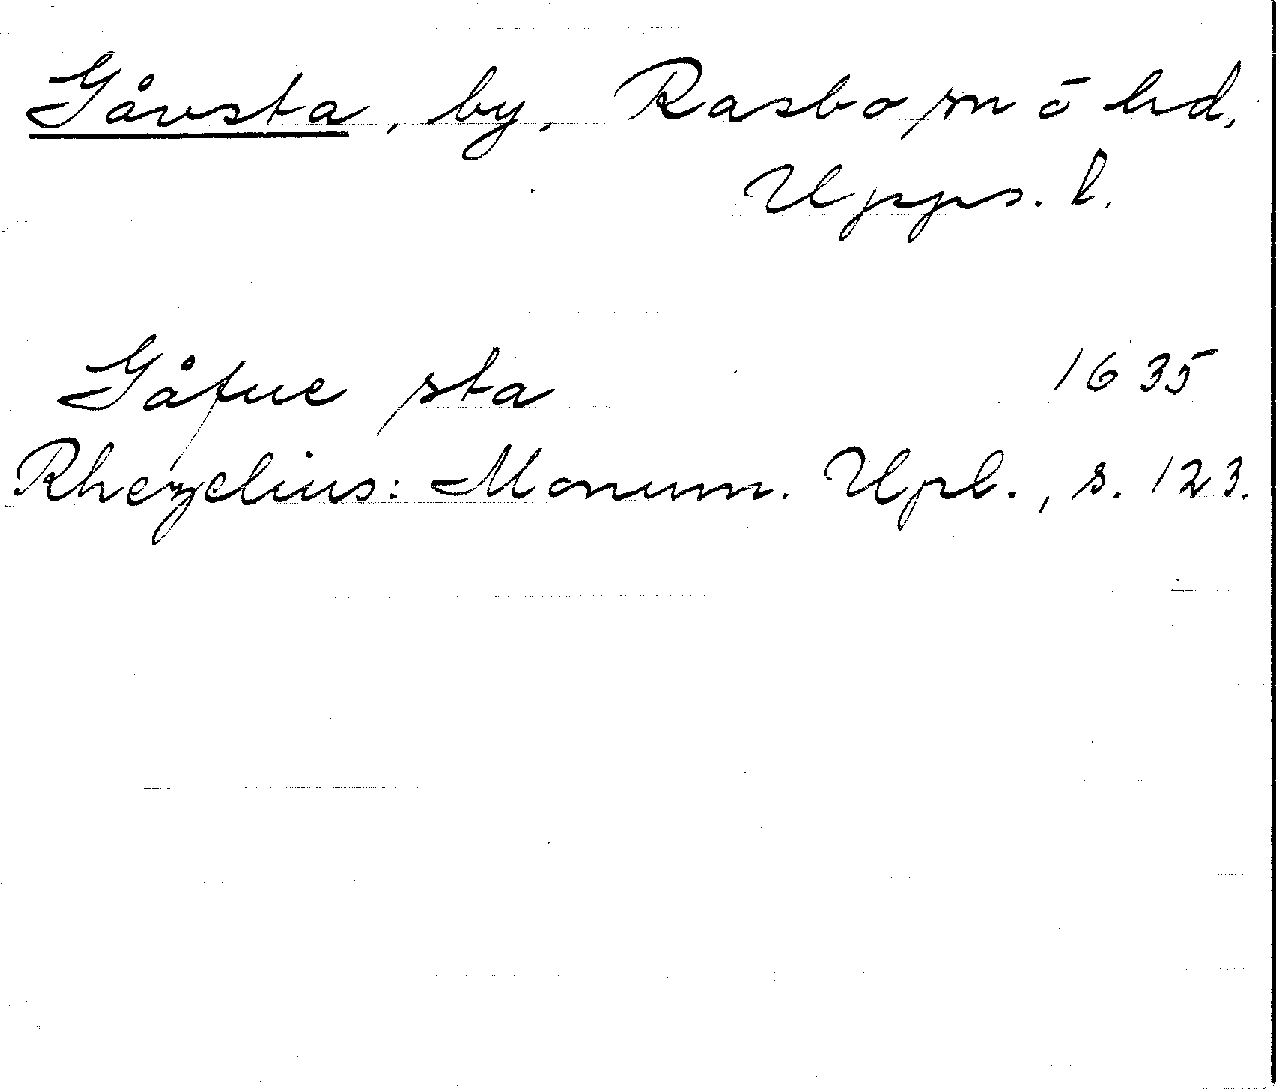 Gåvsta, by, Rasbo sn ö hd,
Upps. l.
Gåfue sta 1635
Rhezelius: Monum. Upl., s. 123.